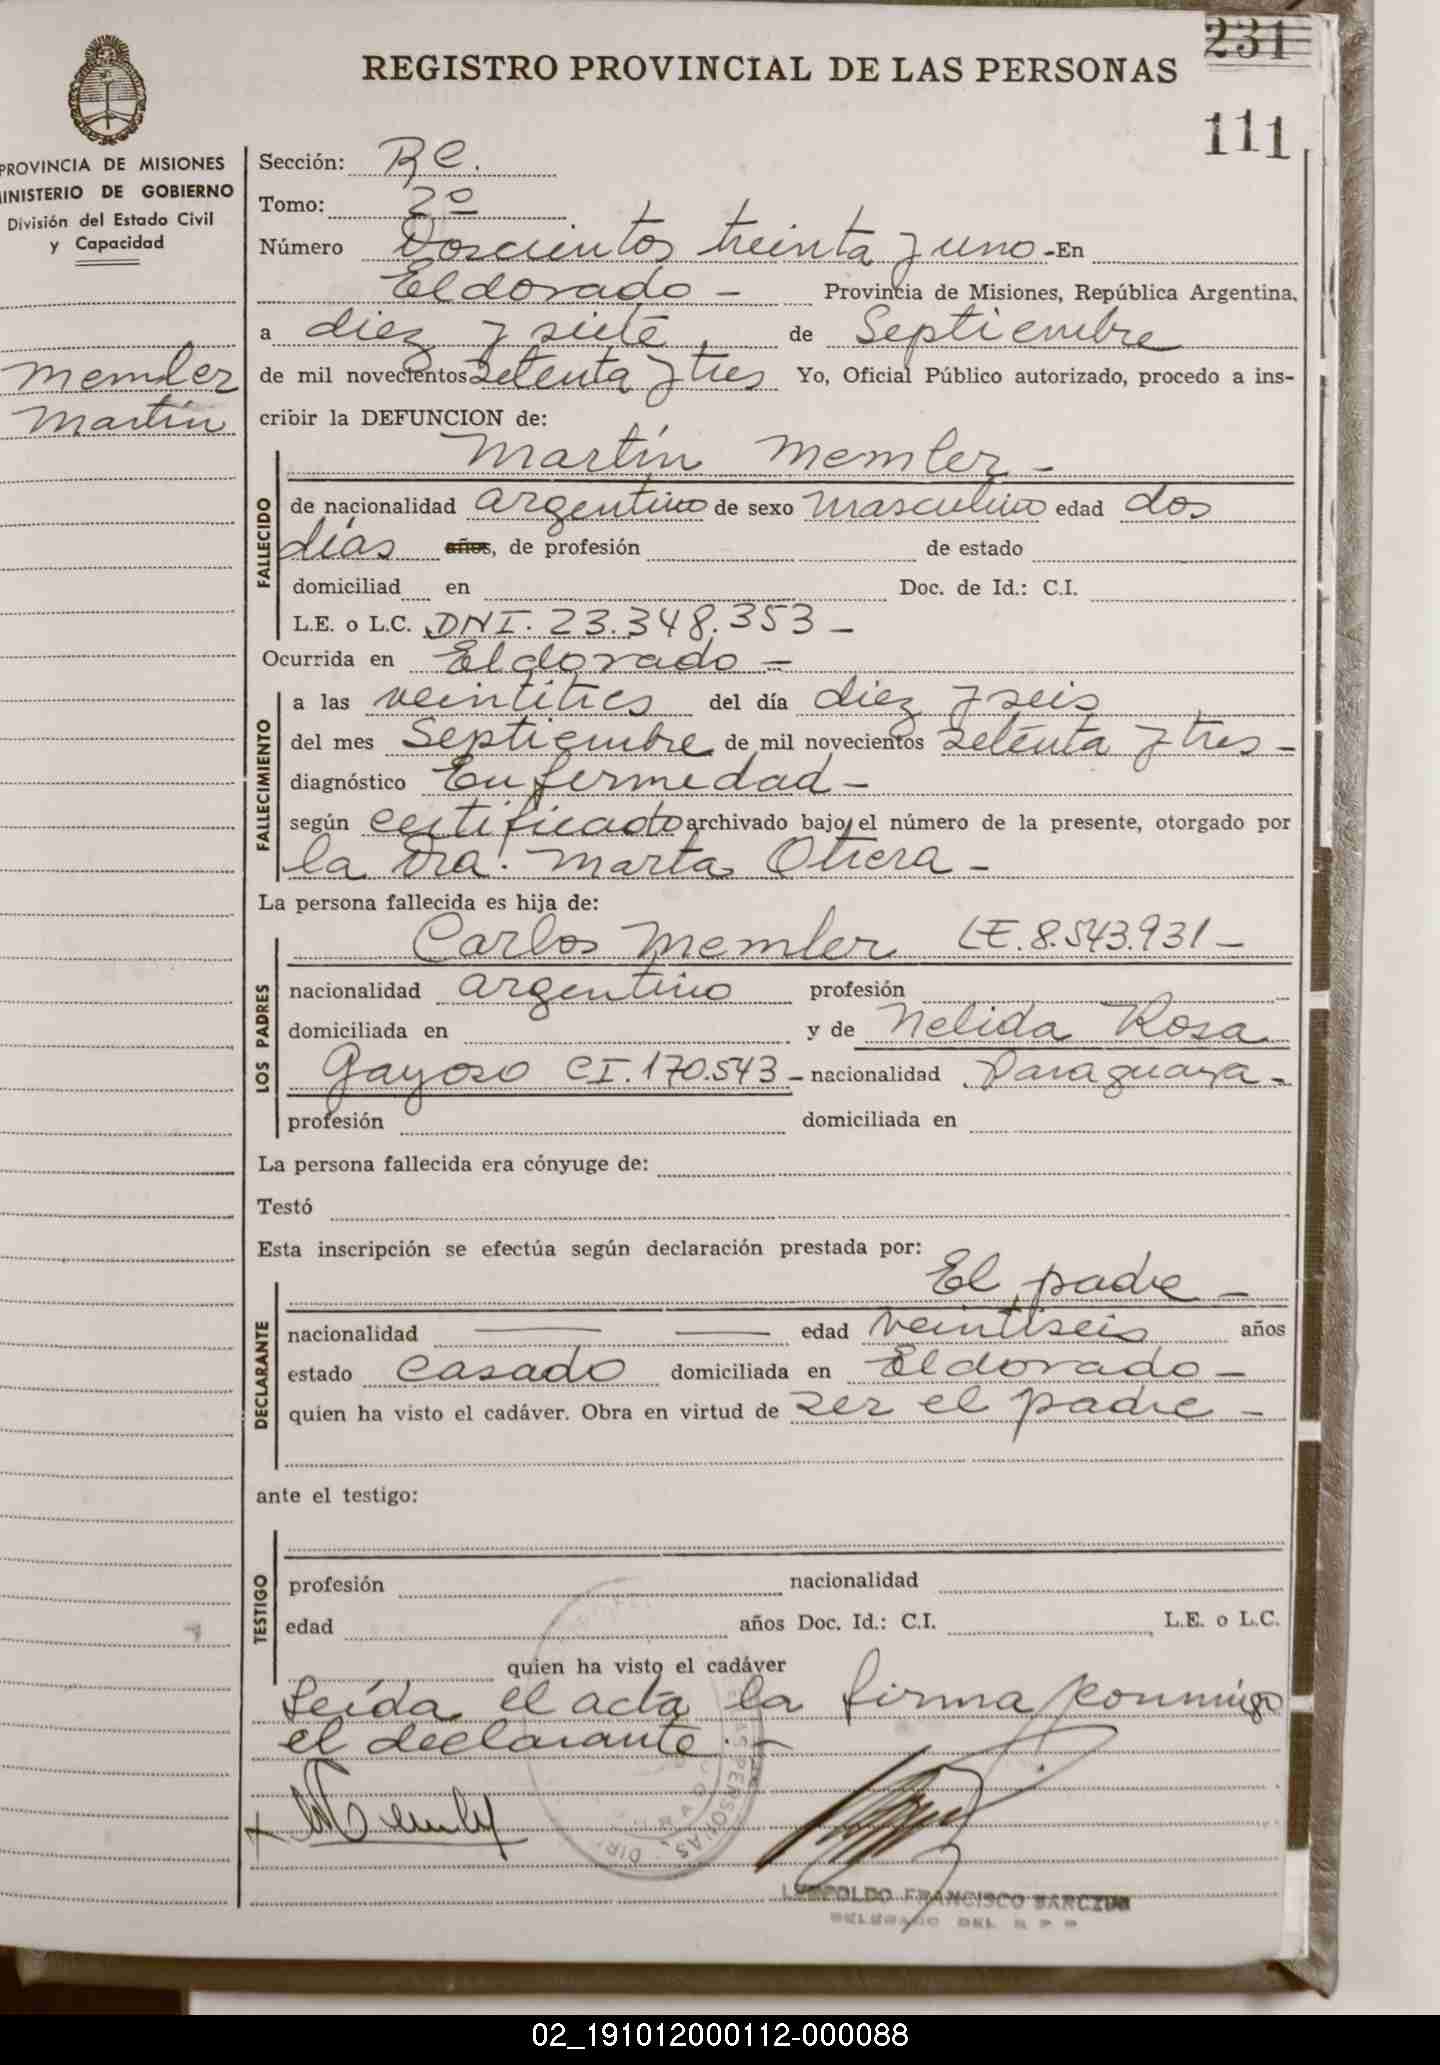 231
REGISTRO PROVINCIAL DE LAS PERSONAS
111
PROVINCIA DE MISIONES
MINISTERIO DE GOBIERNO
División del Estado Civil
y Capacidad
Memler
Martín
Sección: RC.
Tomo: 2º
Número Doscientos treinta y uno -En
Eldorado - Provincia de Misiones, República Argentina,
a diez y siete de Septiembre
de mil novecientos setenta y tres Yo, Oficial Público autorizado, procedo a ins-
cribir la DEFUNCION de:
Martín Memler -
FALLECIDO
de nacionalidad argentino de sexo masculino edad dos
días años, de profesión de estado
domiciliad en Doc. de Id.: C.I.
L.E. o L.C. DNI. 23.348.353 -
Ocurrida en Eldorado -
FALLECIMIENTO
a las veintitres del día diez y seis
del mes Septiembre de mil novecientos setenta y tres -
diagnóstico Enfermedad -
según certificado archivado bajo el número de la presente, otorgado por
la Dra. Marta Otiera -
La persona fallecida es hija de:
LOS PADRES
Carlos Memler LE. 8.543.931 -
nacionalidad argentino profesión
domiciliada en y de Nelida Rosa
Gayoso CI. 170.543 - nacionalidad Paraguaya -
profesión domiciliada en
La persona fallecida era cónyuge de:
Testó
Esta inscripción se efectúa según declaración prestada por:
DECLARANTE
El padre -
nacionalidad edad veintiseis años
estado casado domiciliada en Eldorado -
quien ha visto el cadáver. Obra en virtud de ser el padre -
ante el testigo:
TESTIGO
profesión nacionalidad
edad años Doc. Id.: C.I. L.E. o L.C.
quien ha visto el cadáver
Leída el acta la firma conmigo
el declarante. -
PERSONAS
LEOPOLDO FRANCISCO
DEL R P P
02_191012000112-000088